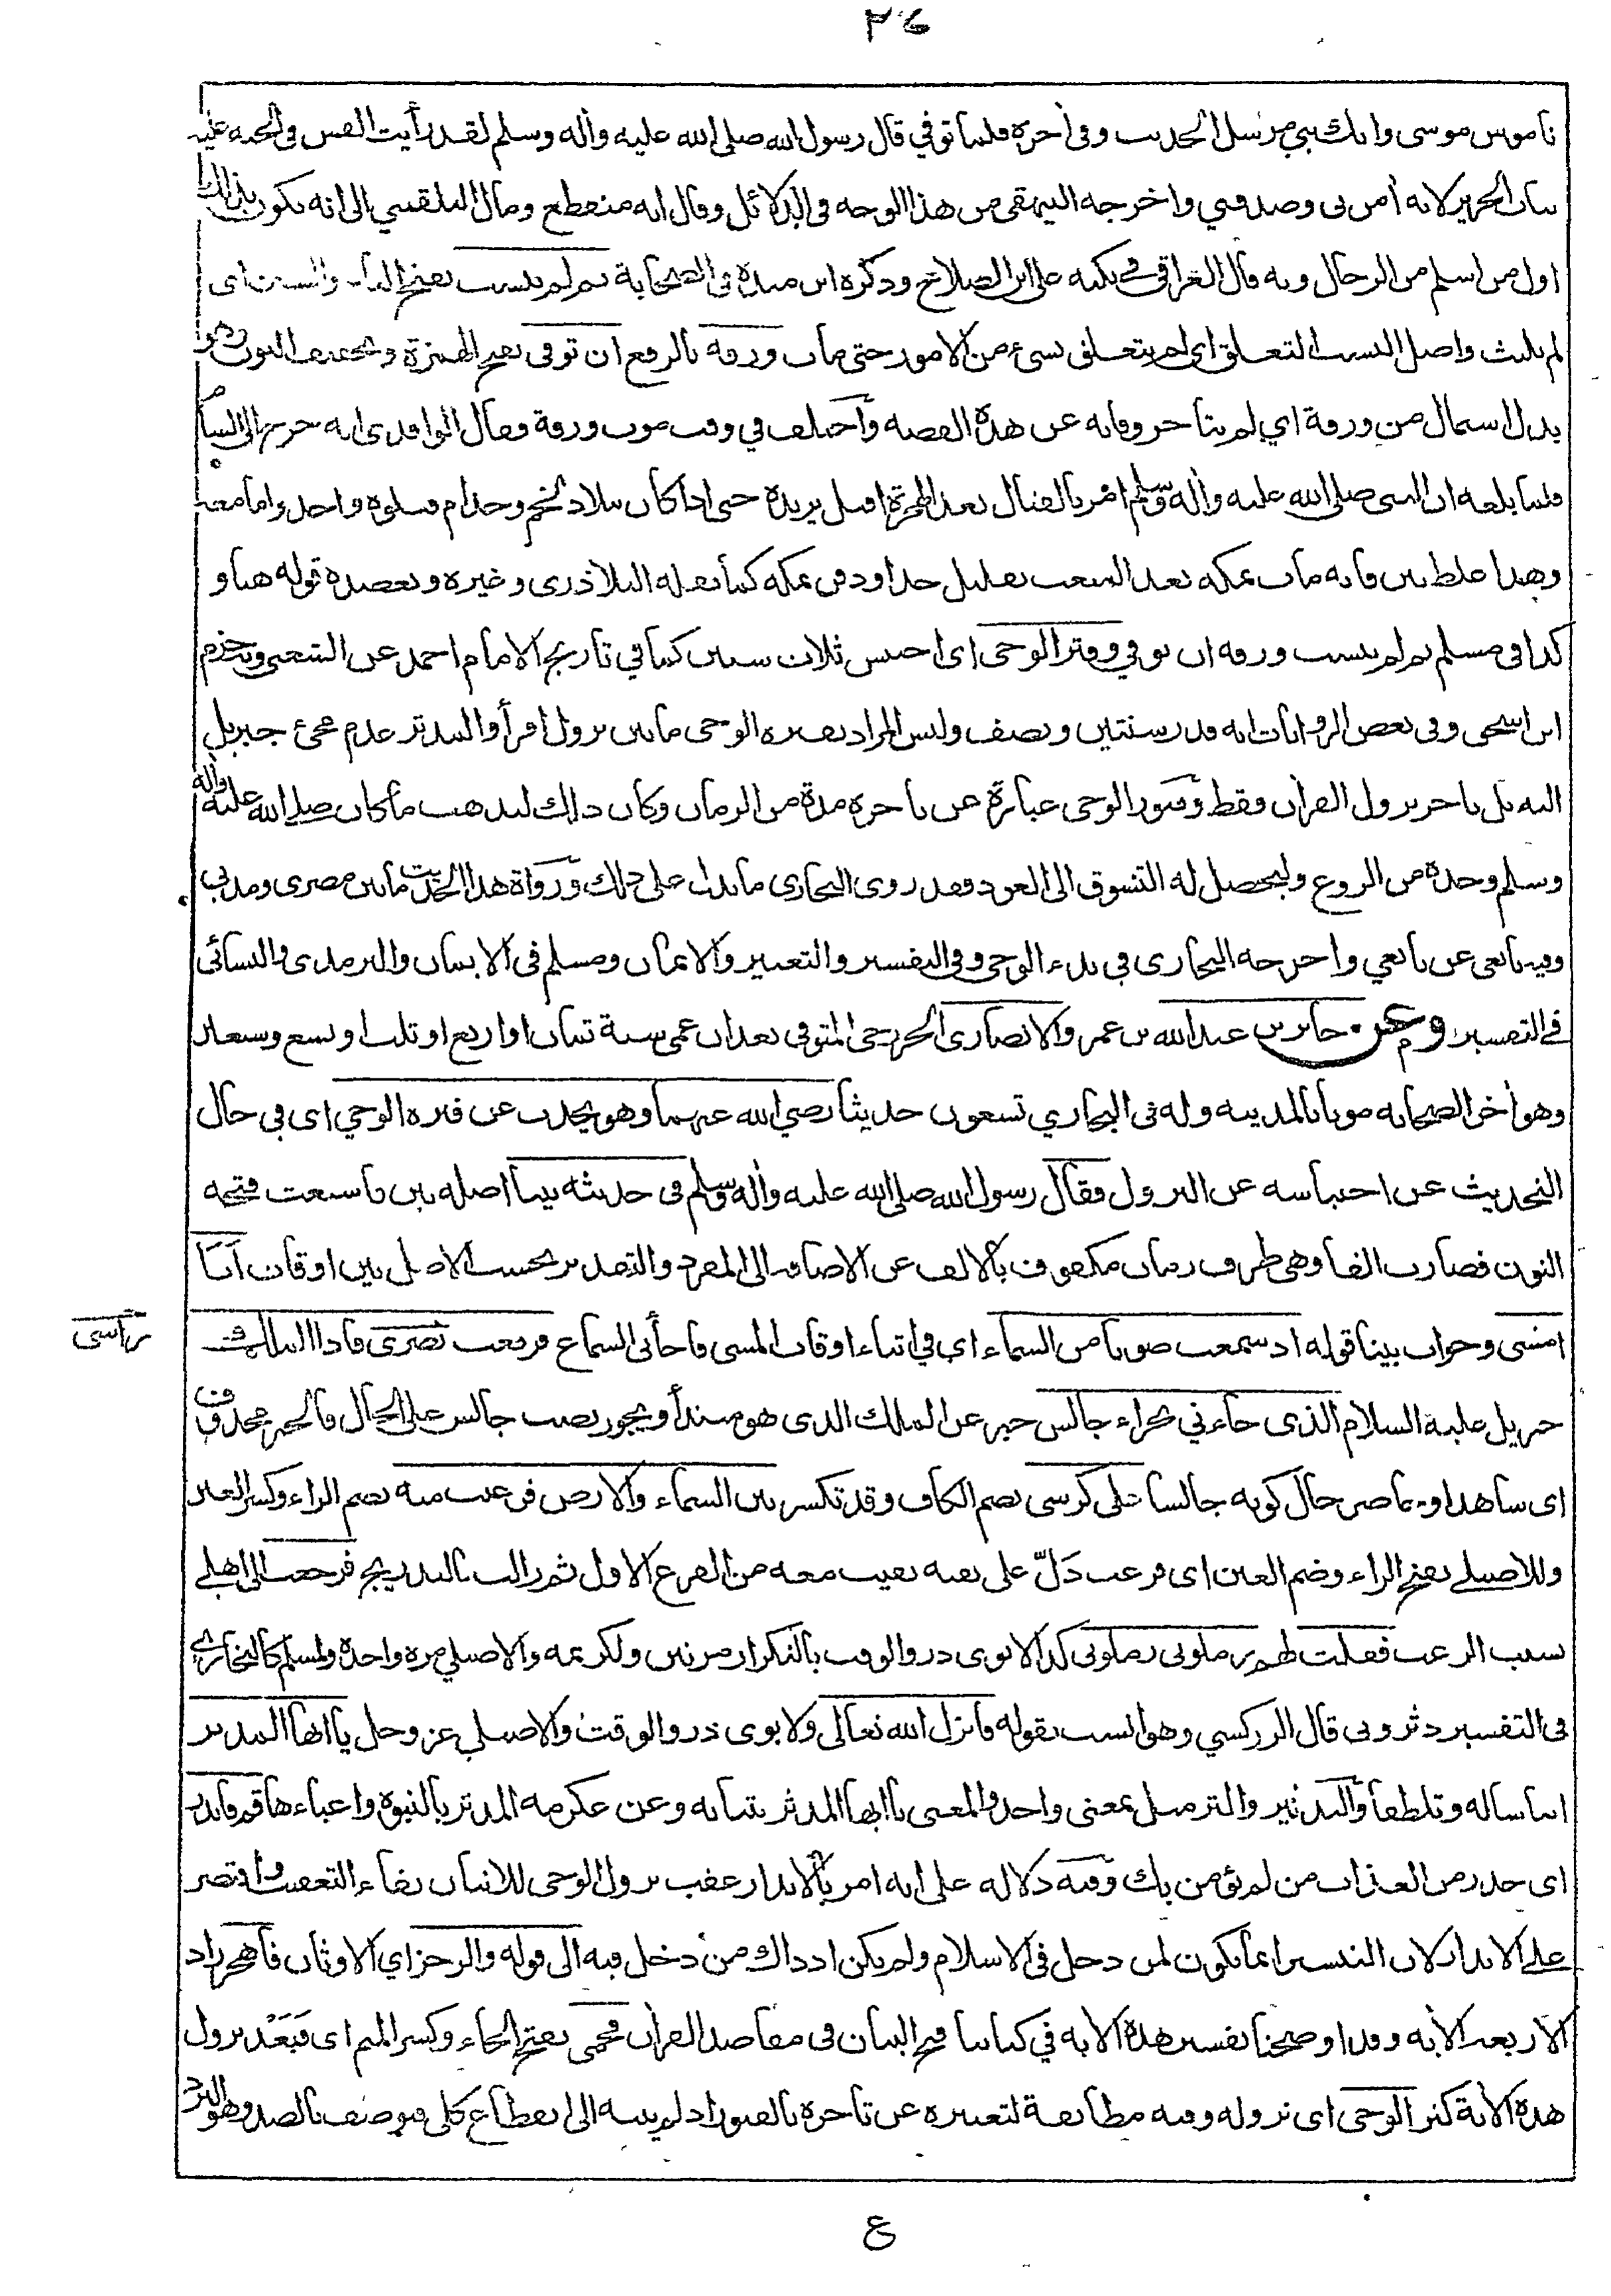 ٢٤
ناموس موسى وانك نبي مرسل الحديث وفي أخره فلما توفي قال رسول الله صلى الله عليه واله وسلم لقد رأيت القس في الجنه عليه
ثياب الحرير لانه أمن بي وصدقني واخرجه البيهقي من هذا الوجه في الدلائل وقال انه منقطع ومال البلقيني الى انه يكون بذلك
اول من اسلم من الرجال وبه قال العراقي في نكته على ابن الصلاح وذكره ابن منده في الصحابة ثم لم ينشب بفتح الياء والشين اى
لم يلبث واصل النشب التعلق اى لم يتعلق بشىء من الامور حتى مات ورقه بالرفع ان توفى بفتح الهمزة وتخفيف النون وهو
بدل اشتمال من ورقة اي لم يتأخر وفاته عن هذه القصه واختلف في وقت موت ورقة فقال الواقدى انه خرج الى الشأم
فلما بلغه ان النبى صلى الله عليه واله وسلم امر بالقتال بعد الهجرة اقبل يريده حتى اذا كان ببلاد لخم وجذام قتلوه واخذوا ما معه
وهذا غلط بين فانه مات بمكه بعد المبعث بقليل جدا ودفن بمكه كما نقله البلاذرى وغيره ويعضده قوله هنا و
كذا في مسلم ثم لم ينشب ورقه ان توفي وفتر الوحى اى احتبس ثلاث سنين كما في تاريخ الامام احمد عن الشعبى وبه جزم
ابن اسحق وفى بعض الروايات انه قدر سنتين ونصف وليس المراد بفتره الوحى ما بين نزول اقرأ والمدثر عدم مجئ جبريل
اليه بل تاخر نزول القرأن فقط وفتور الوحى عبارة عن تاخره مدة من الزمان وكان ذالك ليذهب ما كان صلى الله عليه واله
وسلم وجده من الروع وليحصل له التشوق الى العود فقد روى البخارى ما يدل على ذلك ورواة هذا الحديث ما بين مصرى ومدني
وفيه تابعى عن تابعي واخرجه البخارى في بدء الوحى وفى التفسير والتعبير والايمان ومسلم في الايمان والترمذى والنسائى
في التفسير وعن جابر بن عبد الله بن عمرو الانصارى الخزرجى المتوفى بعد ان عمى سنة ثمان او اربع او ثلث او تسع وسبعين
وهو أخر الصحابه موتا بالمدينه وله في البخاري تسعون حديثا رضي الله عنهما وهو يحدث عن فتره الوحي اى في حال
التحديث عن احتباسه عن النزول فقال رسول الله صلى الله عليه واله وسلم في حديثه بينا اصله بين فاشبعت فتحه
النون فصارت الفا وهى ظرف زمان مكفوف بالالف عن الاضافه الى المفرد والتقدير بحسب الاصل بين اوقات انا
امشى وجواب بينا قوله اذ سمعت صوتا من السماء اى في اثناء اوقات المشى فاجأنى السماع فرفعت بصرى فاذا الملك
رأسى
جبريل عليه السلام الذى جاءني بحراء جالس خبر عن الملك الذى هو مبتدأ ويجوز نصب جالس على الحال والخبر محذوف
اى شاهد او حاضر حال كونه جالسا على كرسى بضم الكاف وقد تكسر بين السماء والارض فرعبت منه بضم الراء وكسر العين
وللاصيلي بفتح الراء وضم العين اى فزعت دلّ على بقيه بقيت معه من الفزع الاول ثم زالت بالتدريج فرجعت الى اهلي
بسبب الرعب فقلت لهم زملونى زملونى كذا لابوى ذر والوقت بالتكرار مرتين ولكريمه والاصيلي مره واحدة ولمسلم كالبخاري
في التفسير دثرونى قال الزركشي وهو انسب بقوله فانزل الله تعالى ولابوى ذر والوقت والاصيلي عز وجل يا ايها المدثر
ايناسا له وتلطفا والتدثير والتزميل بمعنى واحد والمعنى يا ايها المدثر بثيابه وعن عكرمه المدثر بالنبوه واعباءها قم فانذر
اى حذر من العذاب من لم يؤمن بك وفيه دلاله على انه امر بالانذار عقب نزول الوحى للاتيان بفاء التعقيب واقتصر
على الانذار لان التبشير انما يكون لمن دخل في الاسلام ولم يكن اذ ذاك من دخل فيه الى قوله والرجز اي الاوثان فاهجر زاد
الاربعه الأيه وقد اوضحنا تفسير هذه الايه في كتابنا فتح البيان في مقاصد القرأن فحمى بفتح الحاء وكسر الميم اى فبعد نزول
هذه الاية كثر الوحى اى نزوله وفيه مطابقة لتعبيره عن تأخره بالفتور اذ لم ينته الى انقطاع كلى فيوصف بالضد وهو البرد
ع